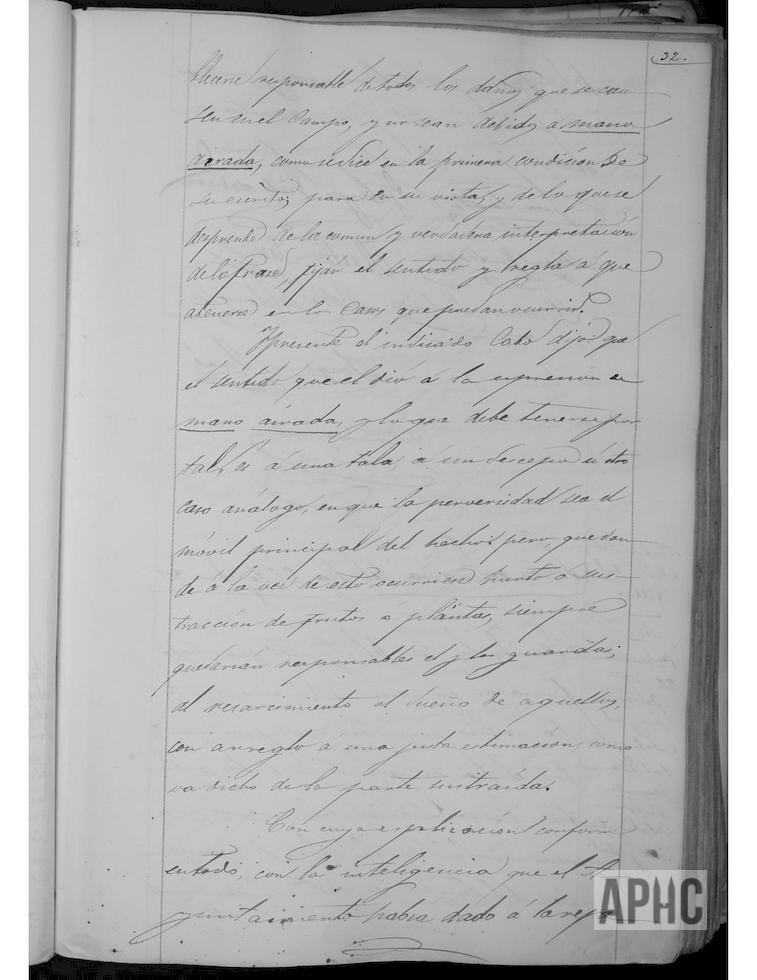 32.
responsable de todos los daños, que se cau
sen en el Campo, y no sean debidos a mano
airada, como se dice en la primera condición de
su escrito; para en su vista, y de lo que se
desprende de la comun y verdadera interpretación
de la frase, fijar el sentido y regla á que
atenerse en los Casos que puedan ocurrir.
Y presente el indicado Cabo dijo: que
el sentido que el dió á la espresion de
mano airada, y lo que debe tenerse por
tal, es á una tala, á un descepe u otro
caso análogo, en que la perversidad sea el
móvil principal del hecho: pero, que
de á la vez de esto ocurriese hurto ó sus-
tracción de frutos ó planta, siempre
quedarían responsables el y los guardas,
al resarcimiento al dueño de aquellos,
con arreglo á una justa estimación, como
va dicho de la parte sustraída.
Con cuya esplicación conforme
en todo, con la inteligencia que el A
yuntamiento habia dado á la
APHC